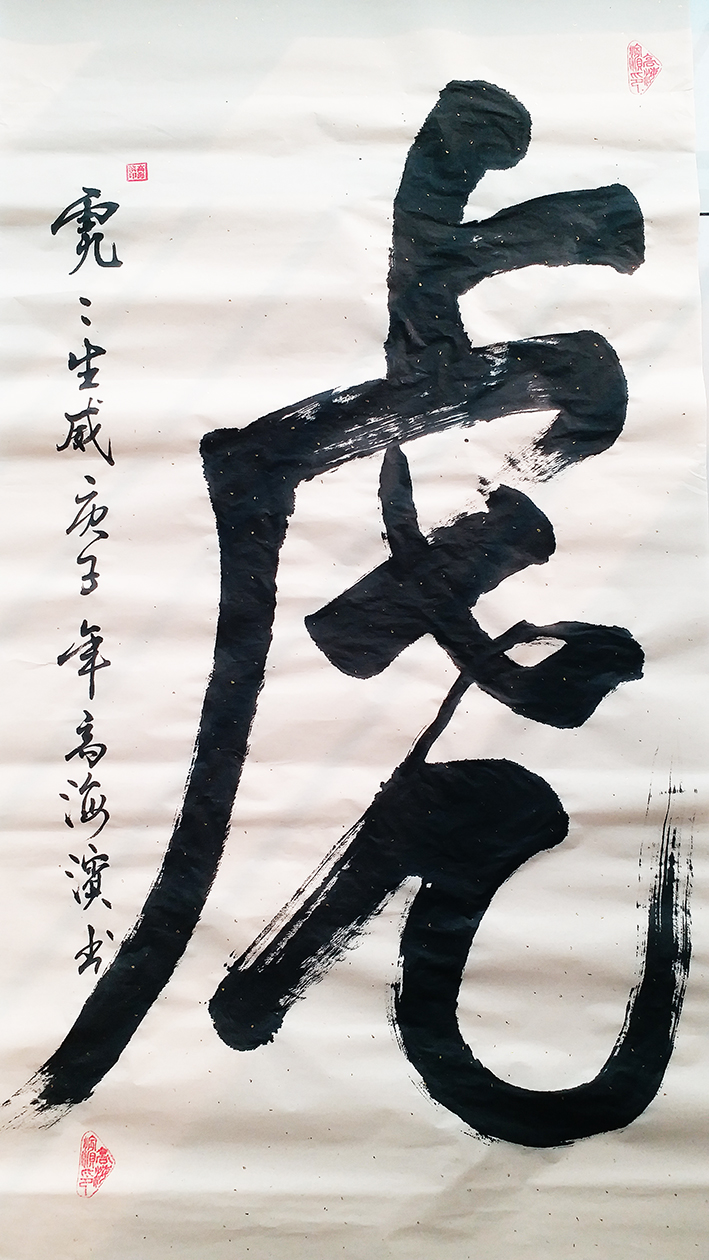 虎
虎〻生威庚子年高海濱书